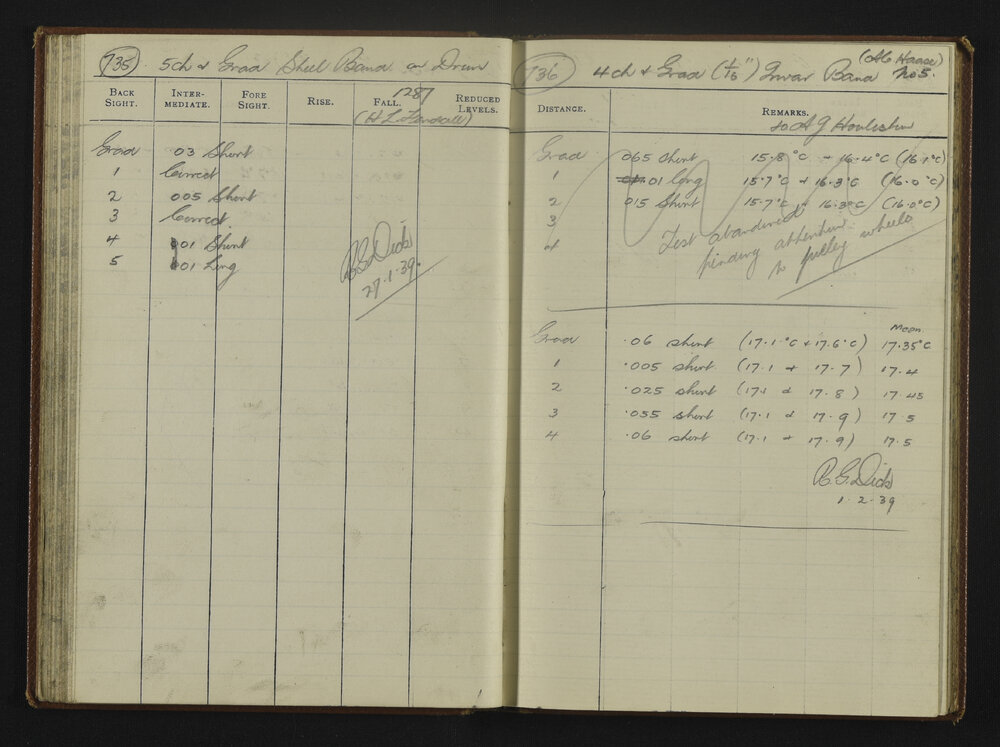 735. 5ch & Grad Steel Band on Drum
BACK SIGHT. INTER-MEDIATE. FORE SIGHT. RISE. FALL. REDUCED LEVELS.
1287
Grad 03 Short
1 Correct
2 005 Short
3 Correct
4 001 Short
5 001 Long
R.G. Dick
27.1.39.
736 4ch & Grad (1/8") Invar Band No 5.
DISTANCE. REMARKS.
to A J
Grad 065 short 15.8°C + 16.4°C (16.1°C)
1 .01 long 15.7°C + 16.3°C (16.0°C)
2 015 Short 15.7°C + 16.3°C (16.0°C)
3 Test abandoned
4 pending attention
to pulley wheels
Mean
Grad .06 short (17.1°C + 17.6°C) 17.35°C
1 .005 short (17.1 + 17.7) 17.4
2 .025 short (17.1 & 17.8) 17.45
3 .055 short (17.1 & 17.9) 17.5
4 .06 short (17.1 + 17.9) 17.5
R.G. Dick
1.2.39